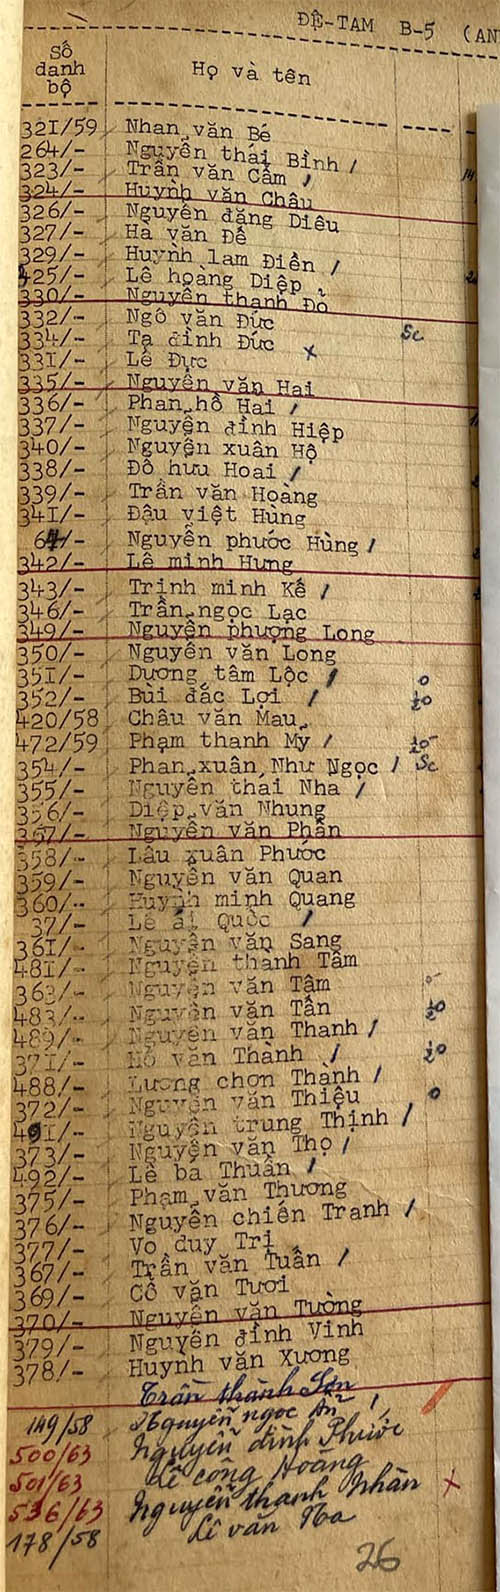 ĐỆ-TAM B-5 (AN
Số danh bộ Họ và tên
321/59 Nhan văn Bé
264/- Nguyễn thái Bình /
323/- Trần văn Cẩm /
324/- Huỳnh văn Châu
326/- Nguyễn đăng Diêu
327/- Hà văn Đê
329/- Huỳnh lam Điền /
425/- Lê hoàng Diệp
330/- Nguyễn thanh Đỏ
332/- Ngô văn Đức Sc
334/- Tạ đình Đức x
331/- Lê Đực
335/- Nguyễn văn Hai
336/- Phan hồ Hai /
337/- Nguyễn đình Hiệp
340/- Nguyễn xuân Hộ
338/- Đỗ hưu Hoai /
339/- Trần văn Hoàng
341/- Đậu việt Hùng
64/- Nguyễn phước Hùng /
342/- Lê minh Hưng
343/- Trịnh minh Kế /
346/- Trần ngọc Lạc
349/- Nguyễn phượng Long
350/- Nguyễn văn Long
351/- Dương tâm Lộc / 0
352/- Bùi đắc Lợi / 20
420/58 Châu văn Mau
472/59 Phạm thanh Mỹ /
354/- Phan xuân Như Ngọc / Sc
355/- Nguyễn thái Nha /
356/- Diệp văn Nhung
357/- Nguyễn văn Phần
358/- Lâu xuân Phước
359/- Nguyễn văn Quan
360/- Huỳnh minh Quang
37/- Lê ái Quốc /
361/- Nguyễn văn Sang
481/- Nguyễn thành Tâm
363/- Nguyễn văn Tâm
483/- Nguyễn văn Tấn
489/- Nguyễn văn Thanh /
371/- Hồ văn Thành /
488/- Lương chơn Thành /
372/- Nguyễn văn Thiệu 0
491/- Nguyễn trung Thịnh /
373/- Nguyễn văn Thọ /
492/- Lê bá Thuần /
375/- Phạm văn Thương
376/- Nguyễn chiến Tranh /
377/- Vo duy Tri
367/- Trần văn Tuấn /
369/- Cổ văn Tươi
370/- Nguyễn văn Tường
379/- Nguyễn đình Vinh
378/- Huynh văn Xương
Trần thành Sơn
149/58 Nguyễn ngọc Ẩn /
500/63 Nguyễn đình Phước
501/63 Lê công Hoàng
536/63 Nguyễn thanh Nhàn x
178/58 Lê văn Na
26